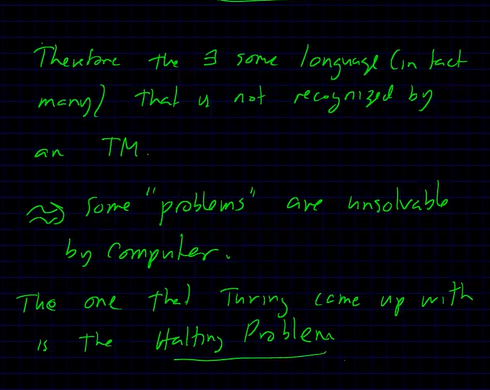 Therefore the ∃ some language (in fact
many) that is not recognized by
an TM.
≈> some "problems" are unsolvable
by computer.
The one that Turing came up with
is the Halting Problem